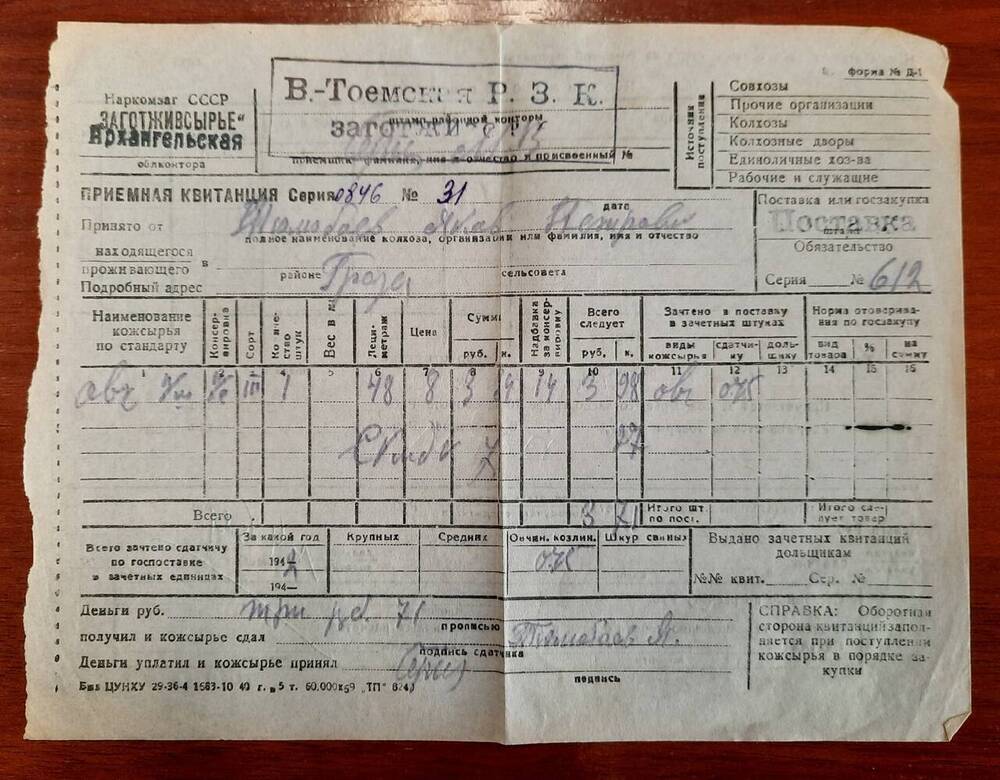 форма № Д-1
Наркомзаг СССР
„ЗАГОТЖИВСЫРЬЕ“
Архангельская
облконтора
В.-Тоемская Р. З. К.
штамп районной конторы
заготжи
приемщик фамилия, имя и отчество и присвоенный №
Источник поступления
Совхозы
Прочие организации
Колхозы
Колхозные дворы
Единоличные хоз-ва
Рабочие и служащие
ПРИЕМНАЯ КВИТАНЦИЯ Серия 0846 № 31
дата
Принято от Яков Петрович
полное наименование колхоза, организации или фамилия, имя и отчество
находящегося
проживающего в районе сельсовета
Подробный адрес
Поставка или госзакупка
Поставка
штамп
Обязательство
Серия № 612
Наименование кожсырья по стандарту
Консервировка
Сорт
Количество штук
Вес в
Дециметраж
Цена
Сумма
руб. к.
Надбавка за консервировку
Всего следует
руб. к.
Зачтено в поставку в зачетных штуках
виды кожсырья
сдатчику
дольщику
Норма отоваривания по госзакупу
вид товара
%
на сумму
1 2 3 4 5 6 7 8 9 10 11 12 13 14 15 16
овч III 1 48 8 3 84 14 3 98 овч 0,75
Скидка 7 27
Всего 3 71 Итого шт. по пост. Итого следует товар
Всего зачтено сдатчику по госпоставке в зачетных единицах
За какой год
194
194—
Крупных
Средних
Овчин. козлин.
0,75
Шкур свиных
Выдано зачетных квитанций дольщикам
№№ квит. Сер. №
Деньги руб. три руб. 71
прописью
получил и кожсырье сдал
подпись сдатчика
Деньги уплатил и кожсырье принял
подпись
СПРАВКА: Оборотная
сторона квитанции запол-
няется при поступлении
кожсырья в порядке за-
купки
Бюл ЦУНХУ 29-36-4 1683-10 40 г.